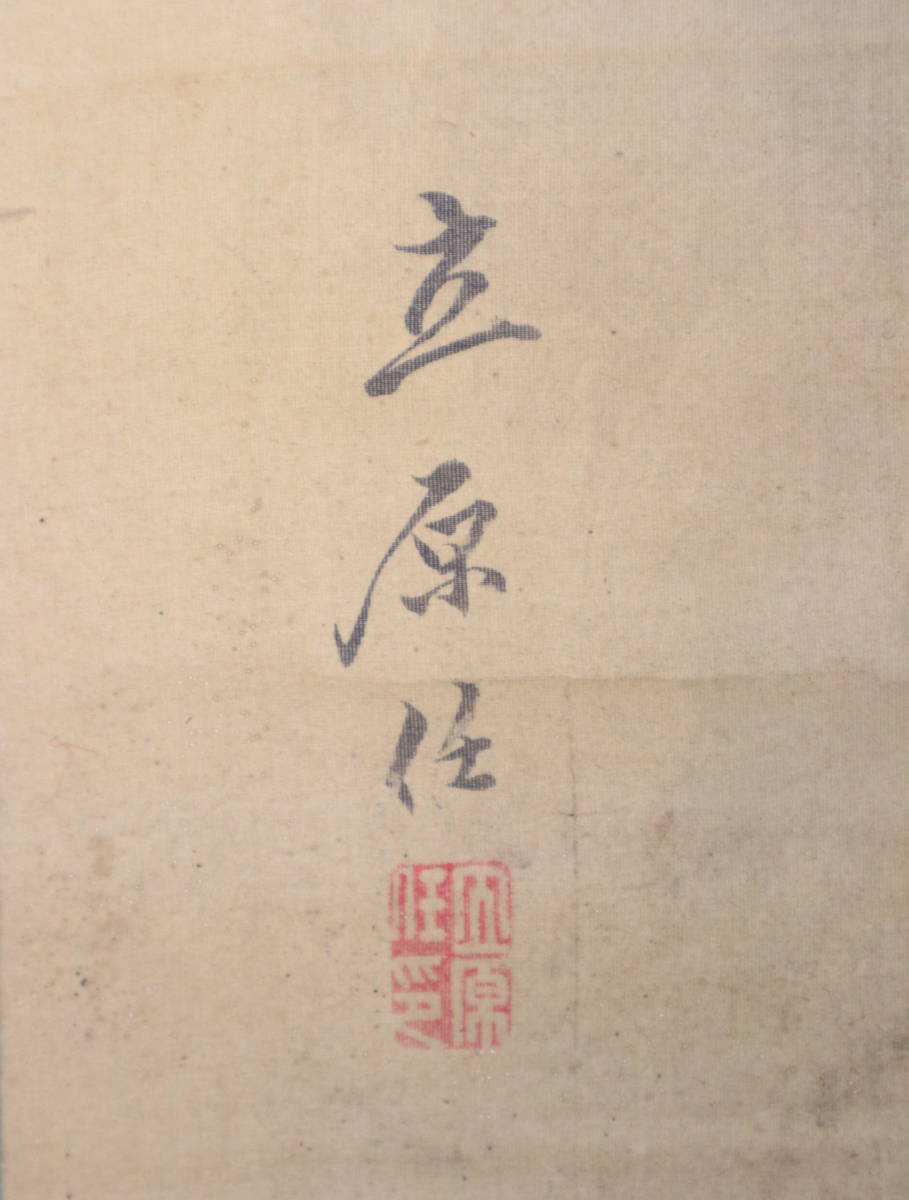 立原任
立原
任印